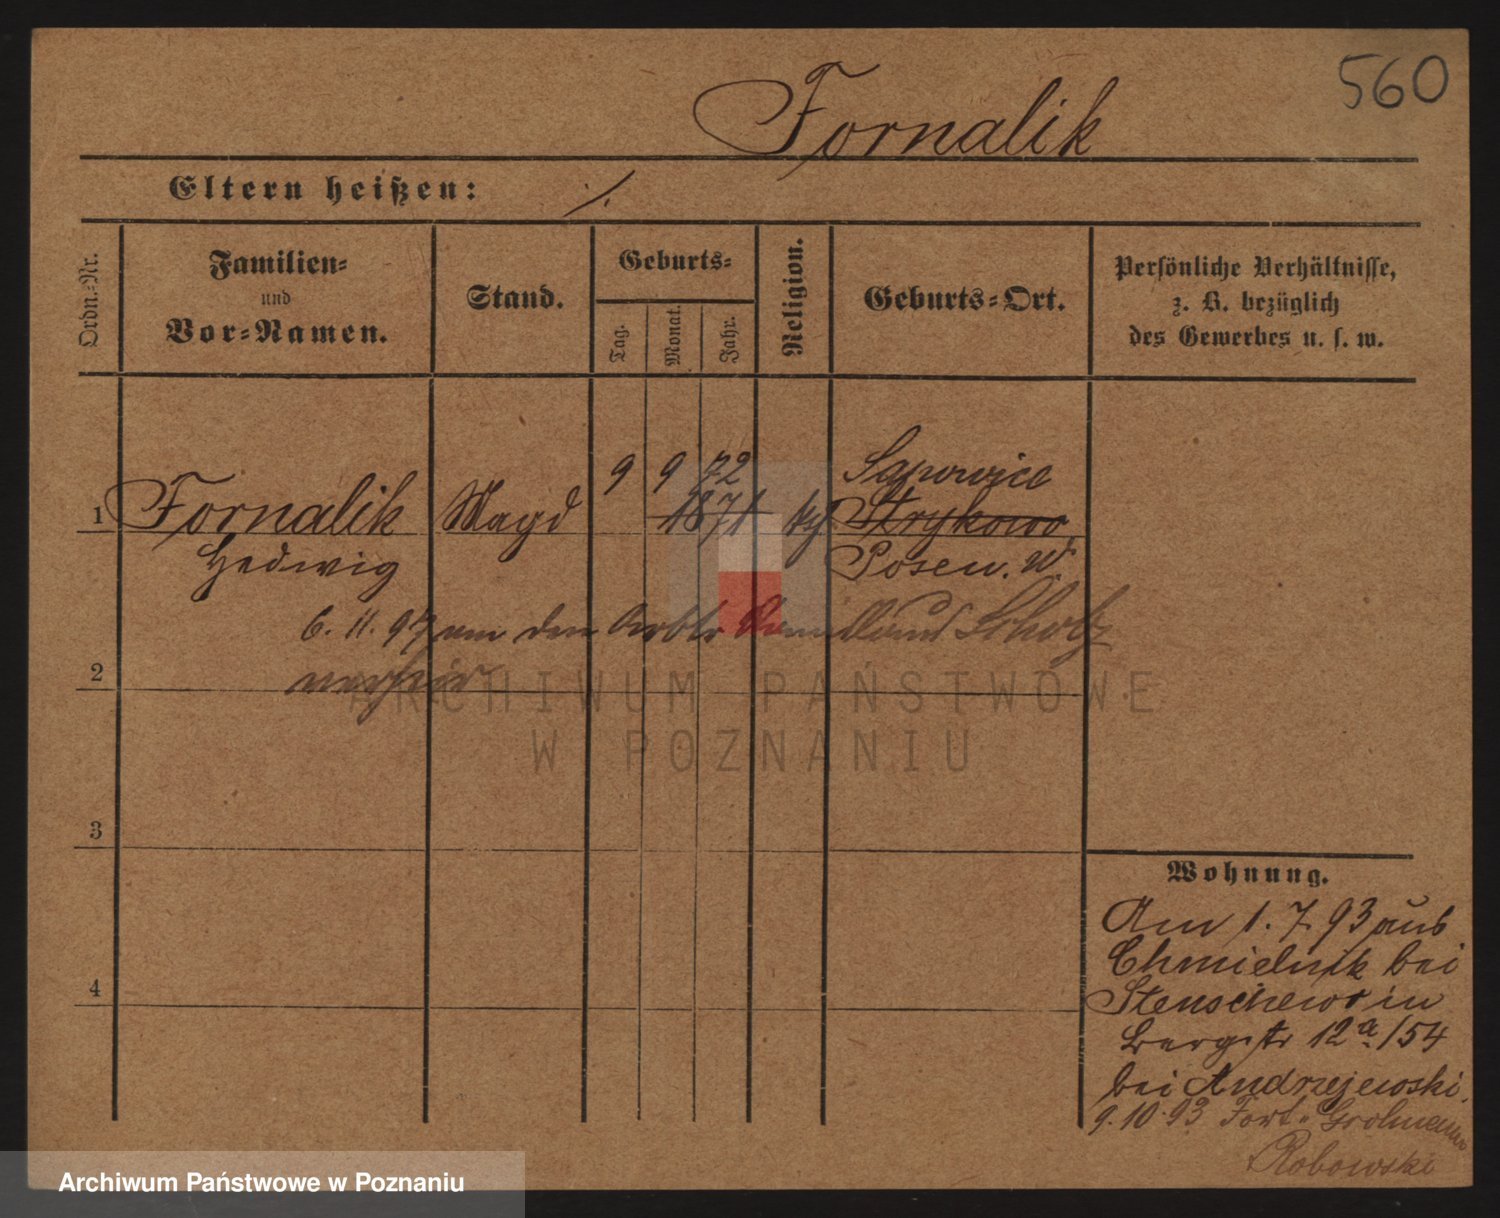 560
Fornalik
Eltern heißen: ./.
Ordn.-Nr.
Familien-
und
Vor-Namen.
Stand.
Geburts-
Tag.
Monat.
Jahr.
Religion.
Geburts-Ort.
Persönliche Verhältnisse,
z. B. bezüglich
des Gewerbes u. s. w.
9 9 72 Sapowice
1 Fornalik Magd 1871 Strykowo
Hedwig Posen. W.
6. 11. 97 an den Arbtr Scholz
2 verheir
ARCHIWUM PAŃSTWOWE
W POZNANIU
3
4
Wohnung.
Am 1. 7. 93 aus
Chmielnik bei
Stenschewo in
Bergstr 12a/54
bei Andrzejewski.
9. 10. 93 Fort Grolmann
Robowski
Archiwum Państwowe w Poznaniu